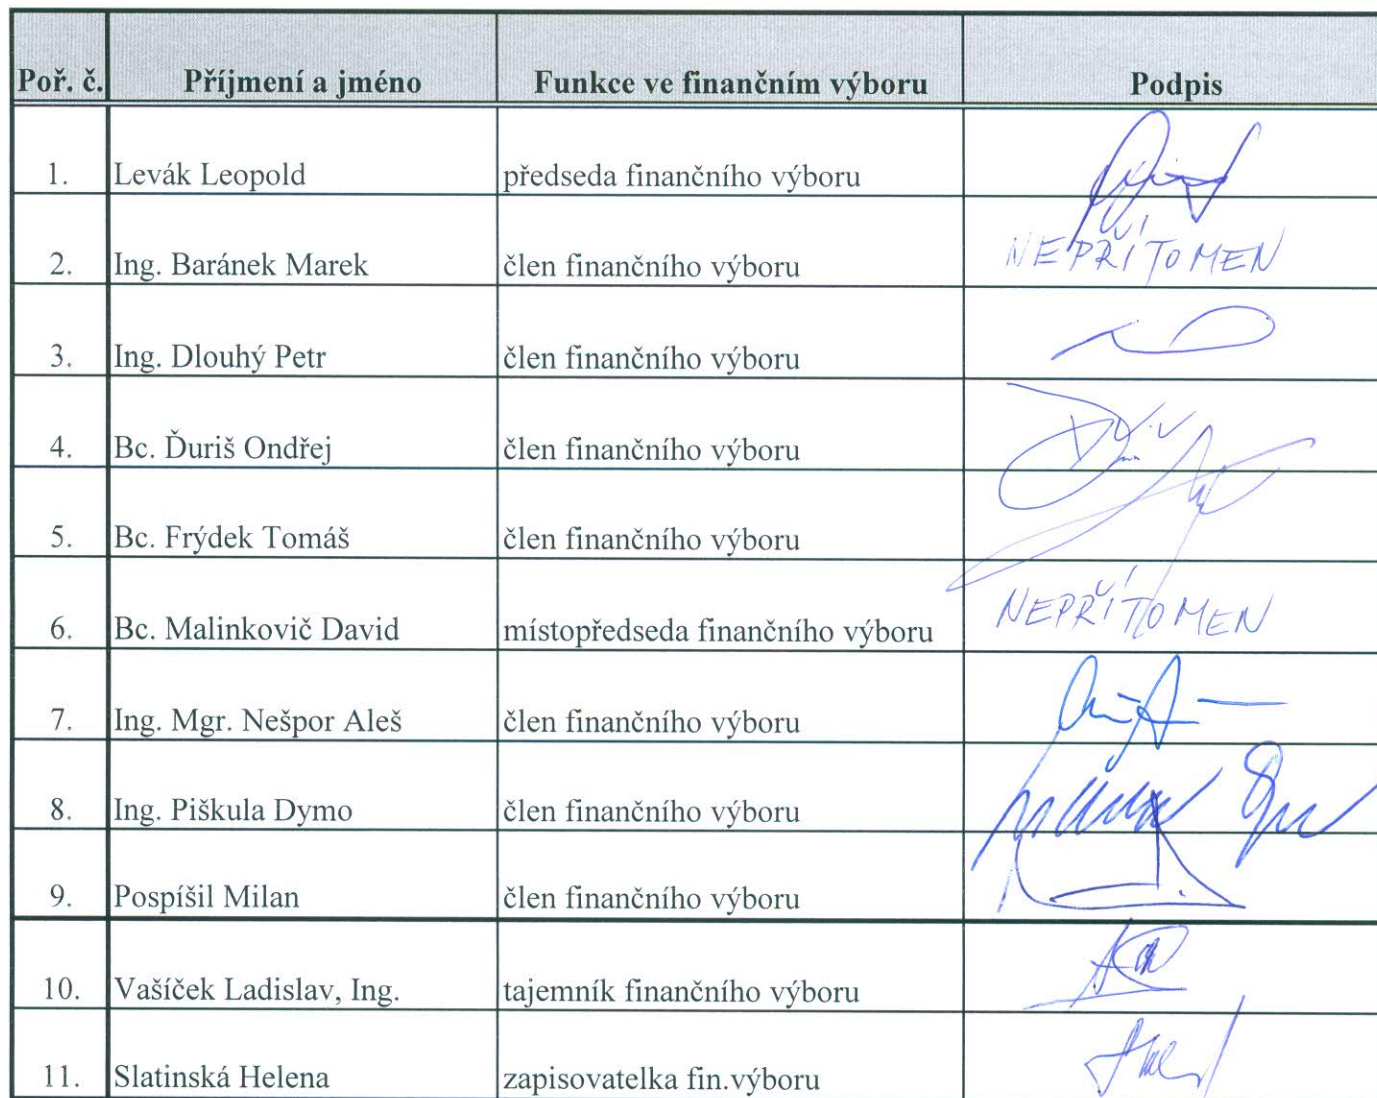 Poř. č. Příjmení a jméno Funkce ve finančním výboru Podpis
1. Levák Leopold předseda finančního výboru
2. Ing. Baránek Marek člen finančního výboru NEPŘÍTOMEN
3. Ing. Dlouhý Petr člen finančního výboru
4. Bc. Ďuriš Ondřej člen finančního výboru
5. Bc. Frýdek Tomáš člen finančního výboru
6. Bc. Malinkovič David místopředseda finančního výboru NEPŘÍTOMEN
7. Ing. Mgr. Nešpor Aleš člen finančního výboru
8. Ing. Piškula Dymo člen finančního výboru
9. Pospíšil Milan člen finančního výboru
10. Vašíček Ladislav, Ing. tajemník finančního výboru
11. Slatinská Helena zapisovatelka fin.výboru